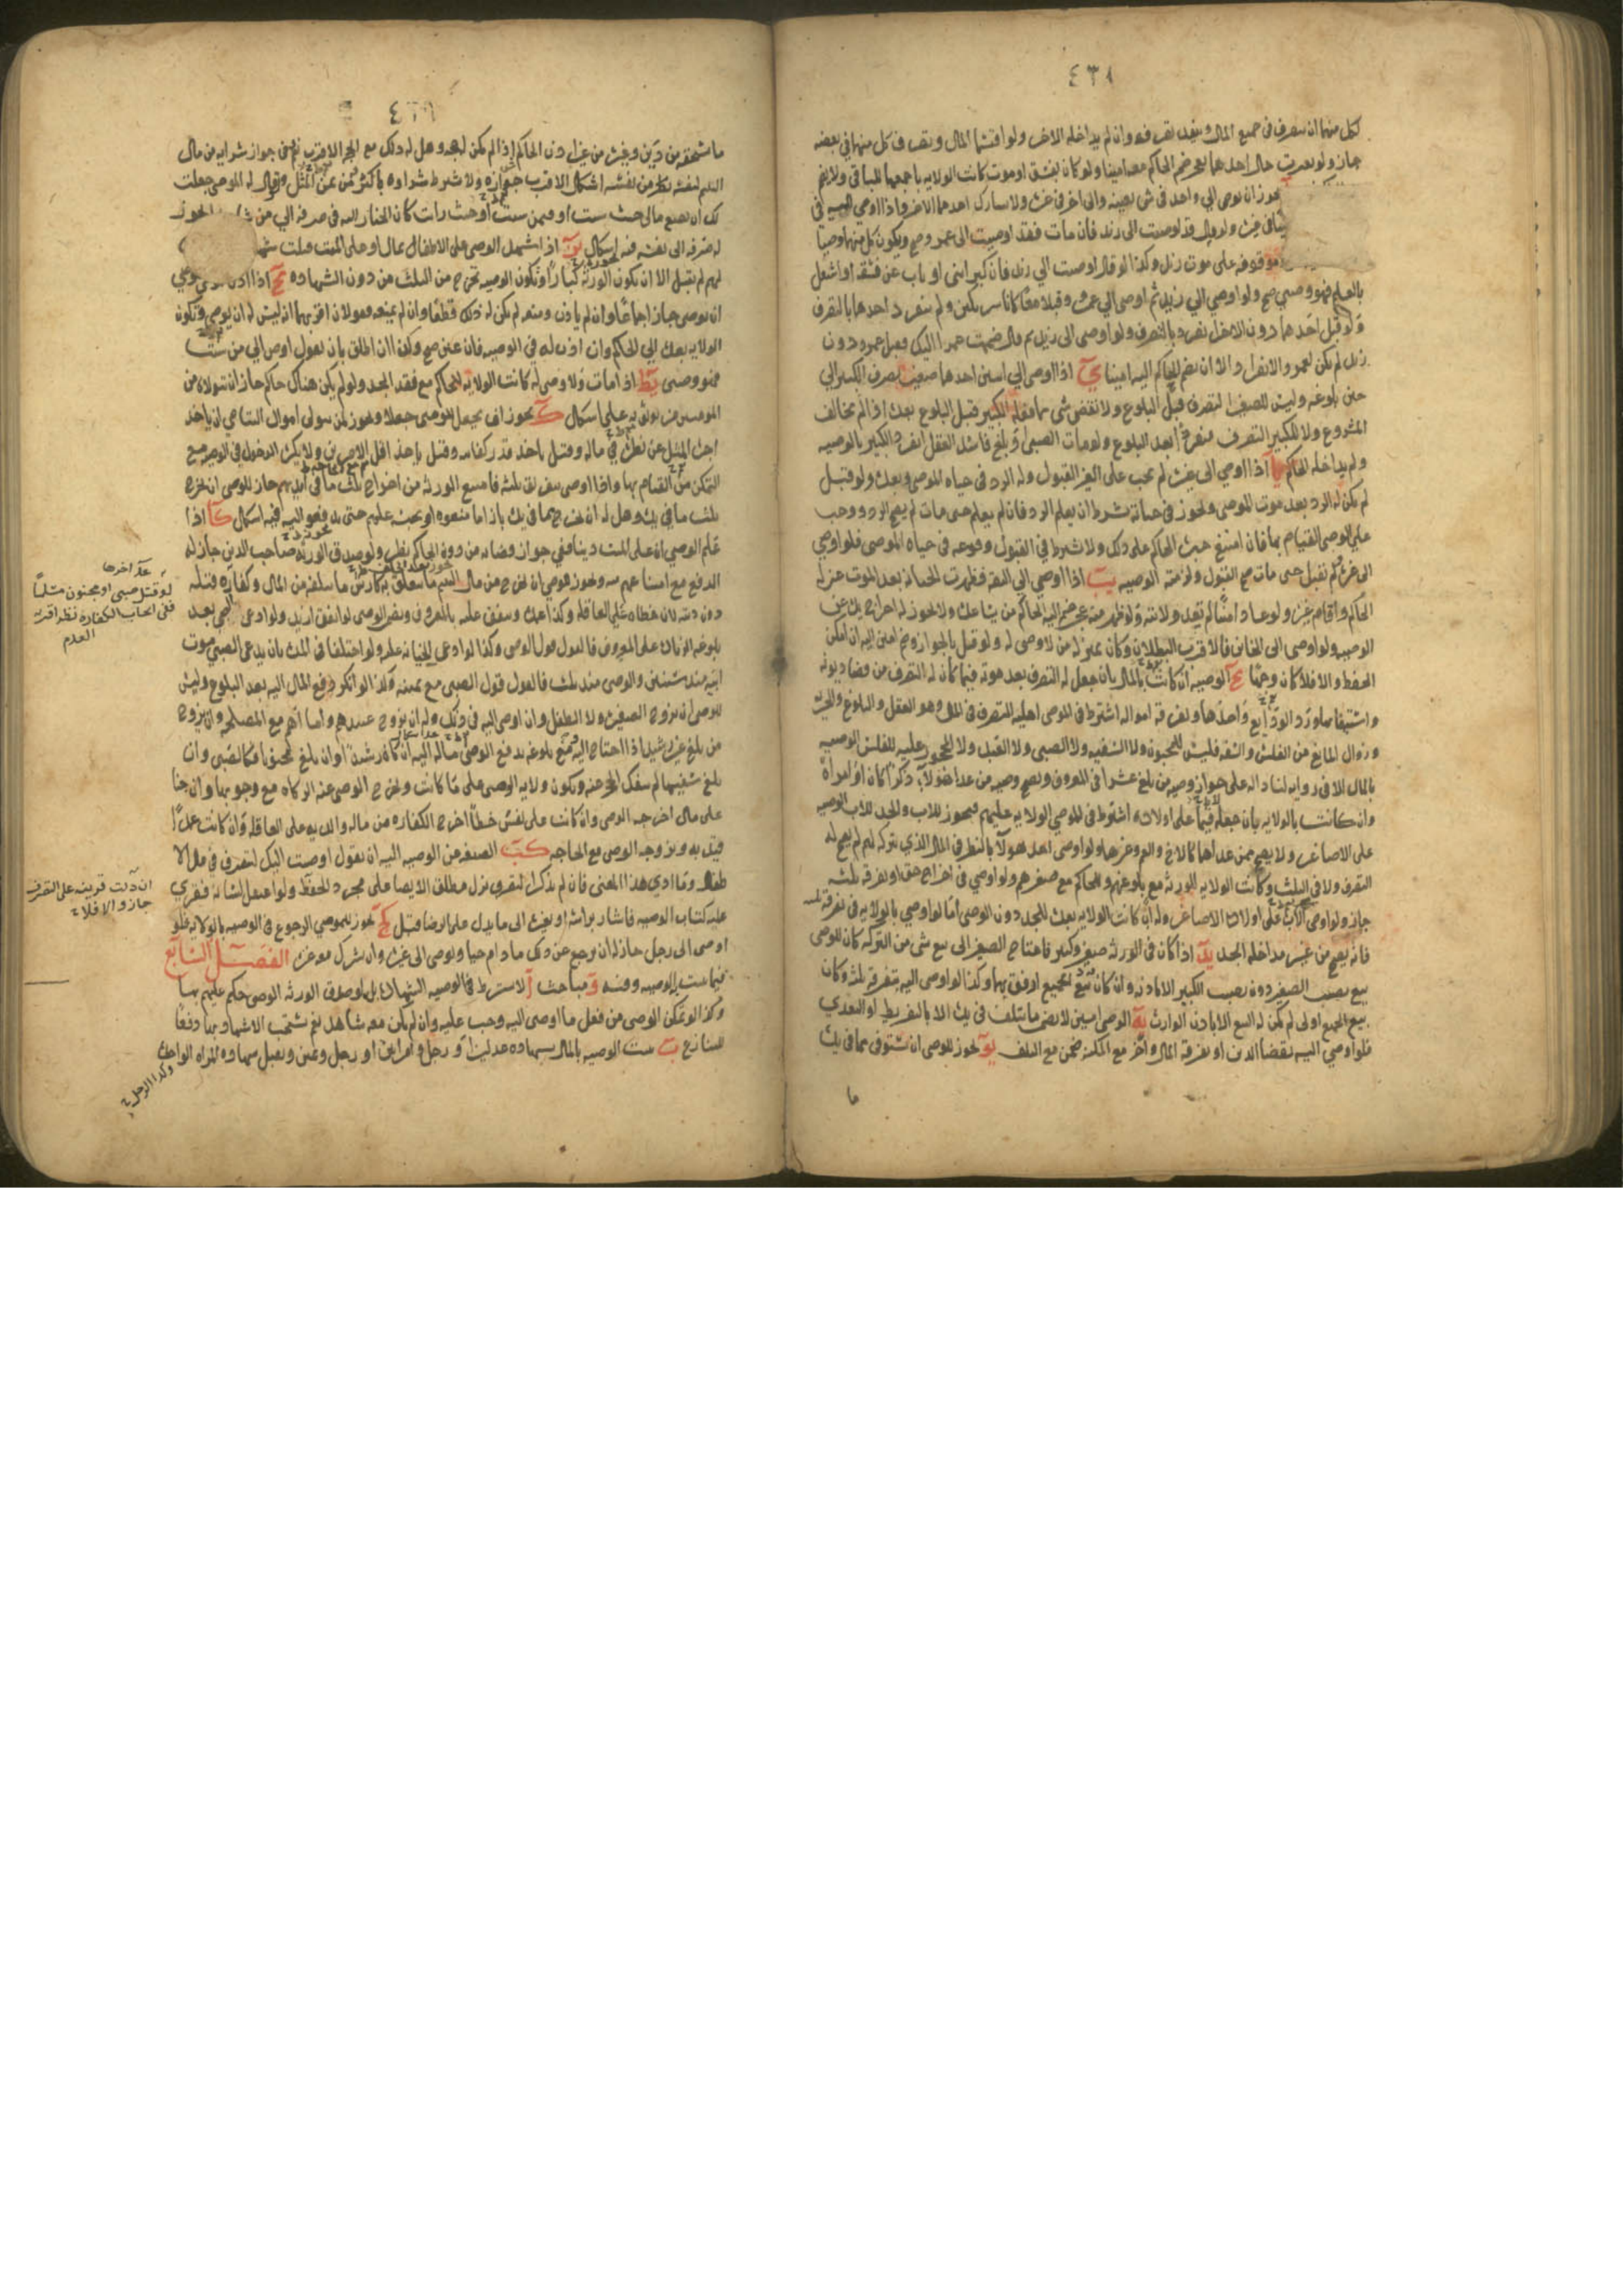 ٤٣٨
لكل منهما ان يتصرف في جميع المال وينفذ تصرفه وان لم يداخله الاخر ولو اقتسما المال وتصرف كل منهما في بعضه
جاز ولو تعذرت حال احدهما بعجز ضم الحاكم معه امينا ولو كان بفسق او موت كانت الولايه باجمعها للباقي ولا يضم
يجوز ان يوصي الي واحد في شي بعينه والى اخر في غيره ولا يشارك احدهما الاخر واذا اوصى اليه في
ولو قال قد اوصيت الى زيد فان مات فقد اوصيت الى عمرو صح ويكون كل منهما وصيا
موقوفه على موت زيد وكذا لو قال اوصيت الي زيد فان كبر ابني او تاب عن فسقه او اشتغل
بالعلم فهو وصيي صح ولو اوصي الي زيد ثم اوصى الي عمرو وقبلا معا كانا شريكين ولم ينفرد احدهما بالتصرف
ولو قبل احدهما دون الاخر انفرد بالتصرف ولو اوصى الى زيد ثم قال ضممت عمرا اليك فقبل عمرو دون
زيد لم يكن لعمرو الانفراد الا ان يضم الحاكم اليه امينا يآ اذا اوصى الي اثنين احدهما صغير تصرف الكبير الي
حين بلوغه وليس للصغير التصرف قبل البلوغ ولا نقض شي مما فعله الكبير قبل البلوغ بعده اذا لم يخالف
المشروع ولا للكبير التصرف منفردا بعد البلوغ ولو مات الصبي او بلغ فاسد العقل انفرد الكبير بالوصيه
ولم يداخله الحاكم يا اذا اوصي الى غيره لم يجب على الغير القبول وله الرد في حياه الموصي وبعده ولو قبل
لم يكن له الرد بعد موت الموصي ويجوز في حياته بشرط ان يعلم الرد فان لم يعلم حتى مات لم يصح الرد ووجب
على الوصي القيام بها فان امتنع جبره الحاكم على ذلك ولا يشترط في القبول وقوعه في حياه الموصي فلو اوصي
الى غيره ولم يقبل حتى مات صح القبول ولزمته الوصيه يب اذا اوصي الي الثقه فظهرت الخيانه بعد الموت عزله
الحاكم واقام غيره ولو عاد امينا لم تعد ولايته ولو ظهر منه عجز ضم اليه الحاكم من يساعده ولا يجوز له اخراج يده عن
الوصيه ولو اوصى الى الخاين فالاقرب البطلان وكان بمنزله من لا وصي له ولو قيل بالجواز وضم امين اليه ان امكن
الحفظ والا فلا كان وجها يج الوصيه ان كانت بالمال بان جعل له التصرف بعد موته فيما كان له التصرف من قضا ديونه
واستيفائها ورد الودايع واخذها وتفرقه امواله اشترط في الموصي اهليه التصرف في المال وهو العقل والبلوغ والحريه
وزوال المانع من الفلس والسفه فليس للمجنون ولا السفيه ولا الصبي ولا العبد ولا المحجور عليه للفلس الوصيه
بالمال الا في روايه لنا داله على جواز وصيه من بلغ عشرا في المعروف وتصح وصيه من عدا هولاء ذكرا كان او امراة
وان كانت بالولايه بان جعله قيما على اولاده اشترط في الموصي الولايه عليهم فيجوز للاب والجد للاب الوصيه
على الاصاغر ولا يصح ممن عداهما كالاخ والعم وغيرهما ولو اوصى احد هولاء بالنظر في المال الذي تركه لهم لم يصح له
التصرف ولا في الثلث وكانت الولايه للورثه مع بلوغهم وللحاكم مع صغرهم ولو اوصي في اخراج حق او تفرقه ثلثه
جاز ولو اوصى الاب على اولاده الاصاغر وله اب كانت الولايه بعده للجد دون الوصي اما لو اوصي بالولايه في تفرقه ثلثه
فانه يصح من غير مداخله الجد يد اذا كان في الورثه صغير وكبير فاحتاج الصغير الى بيع شي من التركه كان للوصي
بيع نصيب الصغير دون نصيب الكبير الا باذنه وان كان بيع الجميع اوفق بهما وكذا لو اوصى اليه بتفرقه ثلثه وكان
بيع الجميع اولى لم يكن له البيع الا باذن الوارث يه الوصي امين لا يضمن ما يتلف في يده الا بالتفريط او التعدي
فلو اوصي اليه بقضا الدين او تفرقه المال واخر مع المكنه ضمن مع التلف يو يجوز للوصي ان يستوفي مما في يده
ما
ما يستحقه من دين وغيره من غير اذن الحاكم اذا لم يكن له حجه وهل له ذلك مع الحجه الاقرب نعم وفي جواز شرايه من مال
اليتيم لنفسه نظر من نفسه اشكال الاقرب جوازه ولا شرط شراوه باكثر من ثمن المثل ولو قال له الموصي جعلت
لك ان تضع مالي حيث شئت او فيمن شئت او حيث رايت كان الخيار اليه في صرفه الي من شا ولا يجوز
له صرفه الى نفسه فيه اشكال يز اذا شهد الوصي على الاطفال بمال او على الميت قبلت شها
لهم لم تقبل الا ان تكون الورثه كبارا وتكون الوصيه تخرج من الثلث من دون الشهاده يح اذا اذن الموصي
ان يوصي جاز اجماعا وان لم ياذن ومنعه لم يكن له ذلك قطعا وان لم يمنعه فقولان اقربهما انه ليس له ان يوصي وتكون
الولايه بعده الي الحاكم وان اذن له في الوصيه فان عين صح وكذا ان اطلق بان يقول اوص الي من شئت
فهو وصيي يط اذا مات ولا وصي له كانت الولايه للحاكم مع فقد الجد ولو لم يكن هناك حاكم جاز ان يتولاه من
المومنين من يوثق به على اشكال ك يجوز ان يجعل للوصي جعلا ويجوز لمن يتولى اموال اليتامي ان ياخذ
اجره المثل عن نظره في ماله وقيل ياخذ قدر كفايته وقيل ياخذ اقل الامرين ولا يكره الدخول في الوصيه مع
التمكن من القيام بها واذا اوصى بتفريق ثلثه فامتنع الورثه من اخراج ثلث ما في ايديهم جاز للوصي ان يخرج
ثلث ما في يده وهل له ان يخرج مما في يده بازا ما منعوه او يحبسه عليهم حتى يدفعوا اليه فيه اشكال كا اذا
علم الوصي ان على الميت دينا ففي جواز قضايه من دون الحاكم نظر ولو صدق الورثه صاحب الدين جاز له
الدفع مع امتناعهم منه ويجوز للوصي ان يخرج من مال اليتيم ما يتعلق به كارش ما يتلفه من المال وكفاره قتله
دون ديته لان خطاه على العاقله وكذا عمده وينفق عليه بالمعروف ويضمن الوصي لو انفق ازيد ولو ادعى الصبي بعد
بلوغه الزياده على المعروف فالقول قول الوصي وكذا لو ادعى الخيانه عليه ولو اختلفا في المده بان يدعي الصبي موت
ابيه منذ سنتين والوصي منذ ثلث فالقول قول الصبي مع يمينه وكذا لو انكر دفع المال اليه بعد البلوغ وليس
للوصي ان يزوج الصغيره ولا الطفل وان اوصي اليه في ذلك وله ان يزوج عبيدهم واماءهم مع المصلحه وان يزوج
من بلغ غير رشيد اذا احتاج اليه ويمنع بلوغه بدفع الوصي ماله اليه ان كان رشيدا وان بلغ مجنونا فكالصبي وان
بلغ سفيها لم ينفك الحجر عنه وتكون ولايه الوصي على ما كانت ويخرج الوصي عنه الزكاه مع وجوبها وان جنا
على مال اخرجه الوصي وان كانت على نفس خطاً اخرج الكفاره من ماله والديه على العاقله وان كانت عمدا
قيل به ويزوجه الوصي مع الحاجه كب الصيغه من الوصيه اليه ان يقول اوصيت اليك لتتصرف في مال الا
طفال وما ادي هذا المعنى فان لم يذكر التصرف نزل مطلق الايصا على مجرد الحفظ ولو اعتقل لسانه فقري
عليه كتاب الوصيه فاشار براسه او بغيره الى ما يدل على الرضا قبل كج يجوز للموصي الرجوع في الوصيه كالوكاله فلو
اوصى الى رجل جاز له ان يرجع عن ذلك ما دام حيا ويوصى الى غيره وان يشرك معه غيره الفصل السابع
فيما يثبت به الوصيه وفيه و مباحث ا لا يشترط في الوصيه الشهاده بل لو صدق الورثه الوصي حكم عليهم بها
وكذا لو تمكن الوصي من فعل ما اوصى اليه وجب عليه وان لم يكن معه شاهد نعم يستحب الاشهاد بها دفعا
للتنازع ب يثبت الوصيه بالمال بشهاده عدلين او رجل وامراتين او رجل ويمين وتقبل شهاده المراه الواحده
وكذا الرجل
لو قتل صبي او مجنون مسلما
ففي ايجاب الكفاره نظر اقربه
العدم
ان دلت قرينه على التصرف
جاز والا فلا